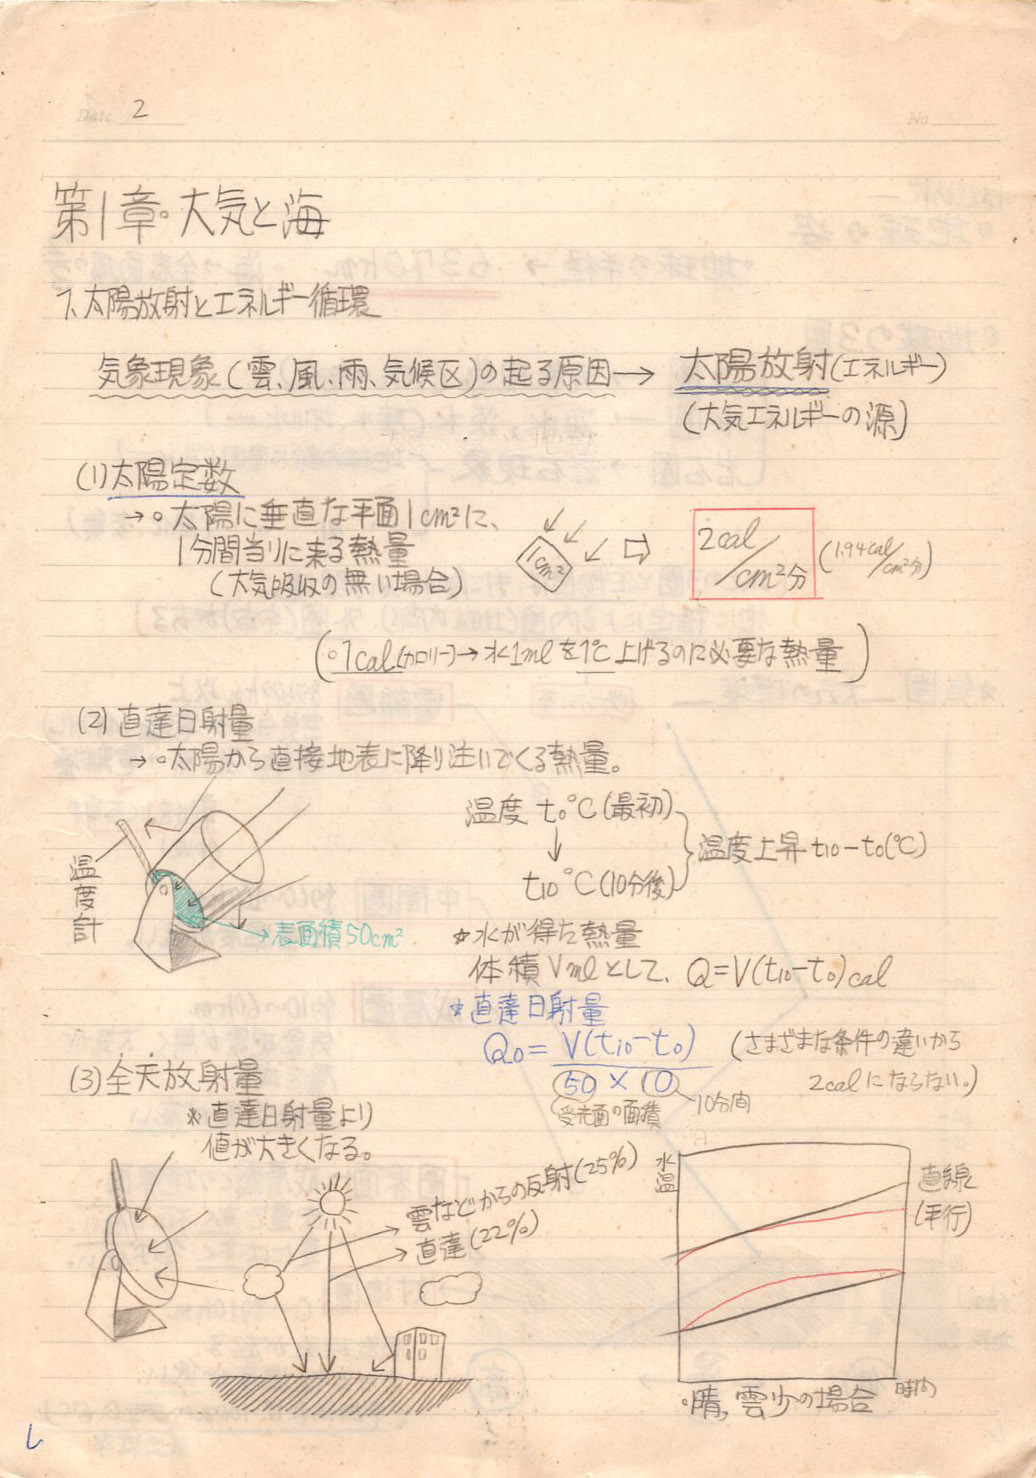 Date 2
No
第1章。大気と海
1. 太陽放射とエネルギー循環
気象現象(雲、風、雨、気候区)の起る原因→ 太陽放射(エネルギー)
(大気エネルギーの源)
(1)太陽定数
→。太陽に垂直な平面1cm²に、
1分間当りに来る熱量
(大気吸収の無い場合)
1cm²
2cal/cm²分
(1.94cal/cm²分)
(。1cal(カロリー)→水1mlを1℃上げるのに必要な熱量)
(2)直達日射量
→。太陽から直接地表に降り注いでくる熱量。
温度計
→表面積50cm²
温度 t₀℃(最初)
↓
t₁₀℃(10分後)
温度上昇 t₁₀-t₀(℃)
☆水が得た熱量
体積Vmlとして、Q=V(t₁₀-t₀)cal
☆直達日射量
Q₀= V(t₁₀-t₀)
50×10
受光面の面積
10分間
(さまざまな条件の違いから
2calにならない。)
(3)全天放射量
※直達日射量より
値が大きくなる。
雲などからの反射(25%)
直達(22%)
水温
直線
(平行)
時間
・晴、雲少の場合